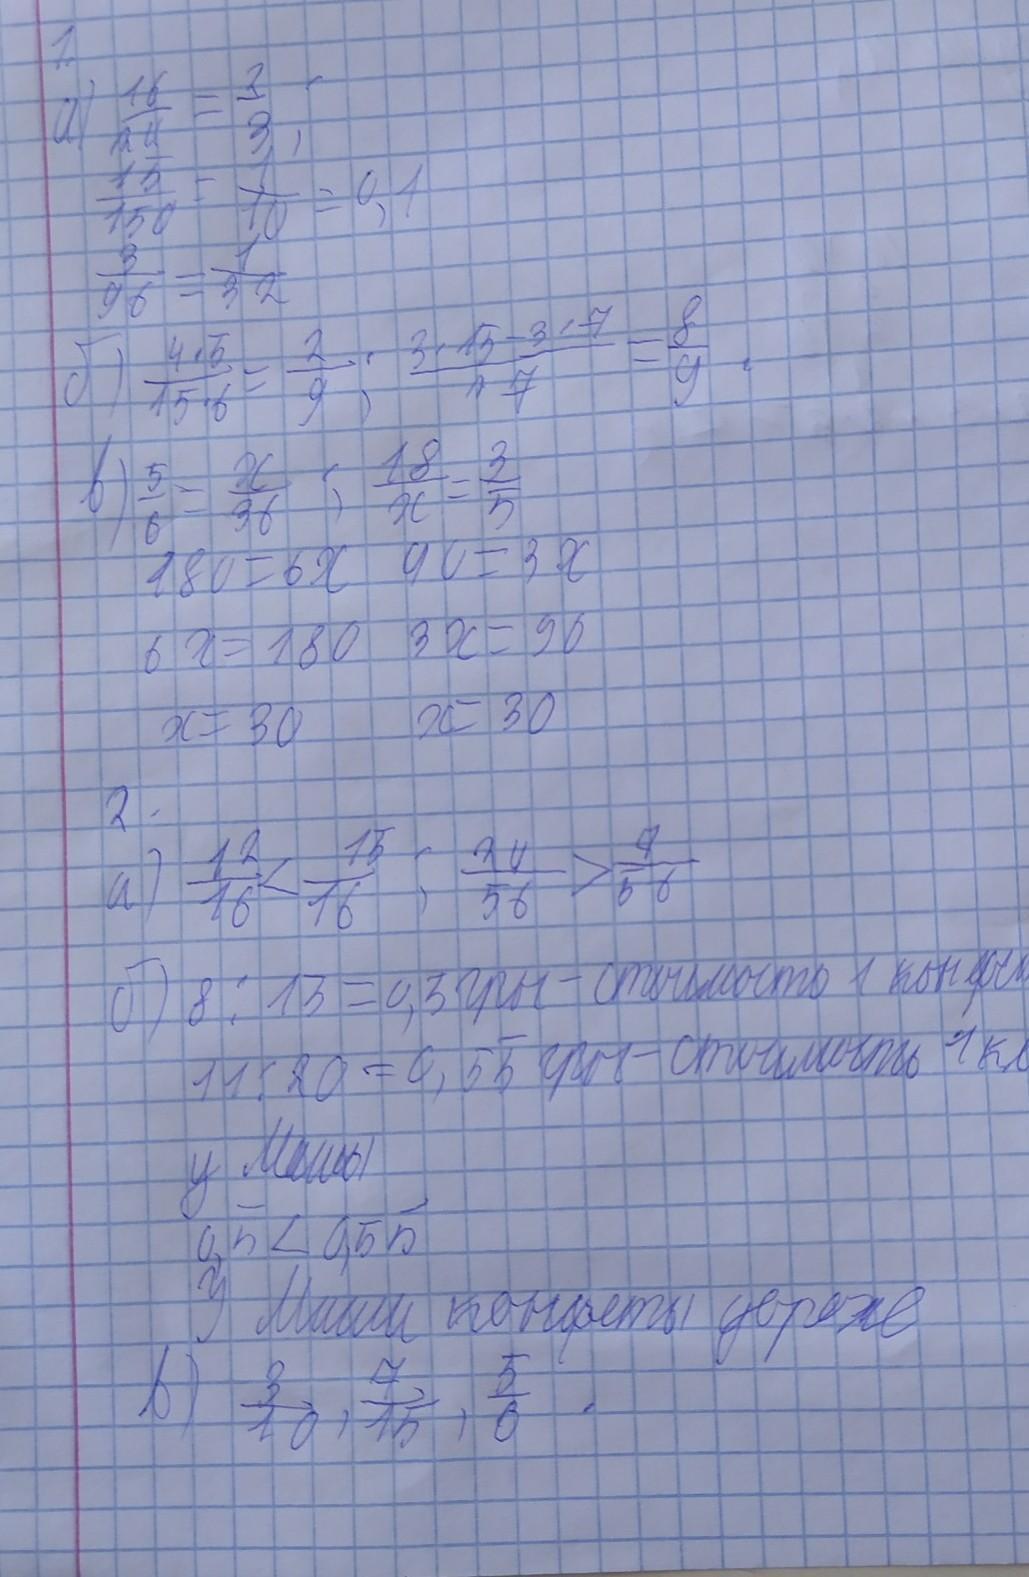 1.
а) 16/24 = 2/3;
15/150 = 1/10 = 0,1
3/96 = 1/32
б) 4·5/15·6 = 2/9; = 8/9.
в) 5/6 = x/36; 18/x = 3/5
180=6x 90=3x
6x=180 3x=90
x=30 x=30
2.
а) 12/16 < 15/16; 24/56 > /56
б) 8:15=0,5 грн - стоимость 1
11:20=0,55 грн - стоимость 1
у Маши
0,5 < 0,55
У Миши конфеты дороже
в) 3/10, 7/15, 5/6.